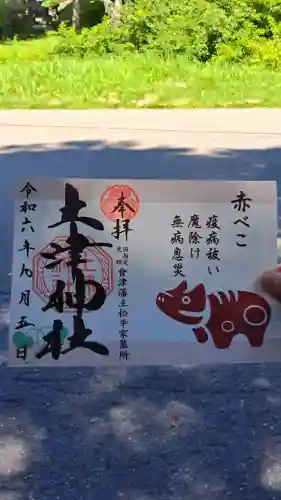 赤べこ
疫病祓い
魔除け
無病息災
奉拝
国指定史跡
會津藩主松平家墓所
土津神社
令和六年九月五日